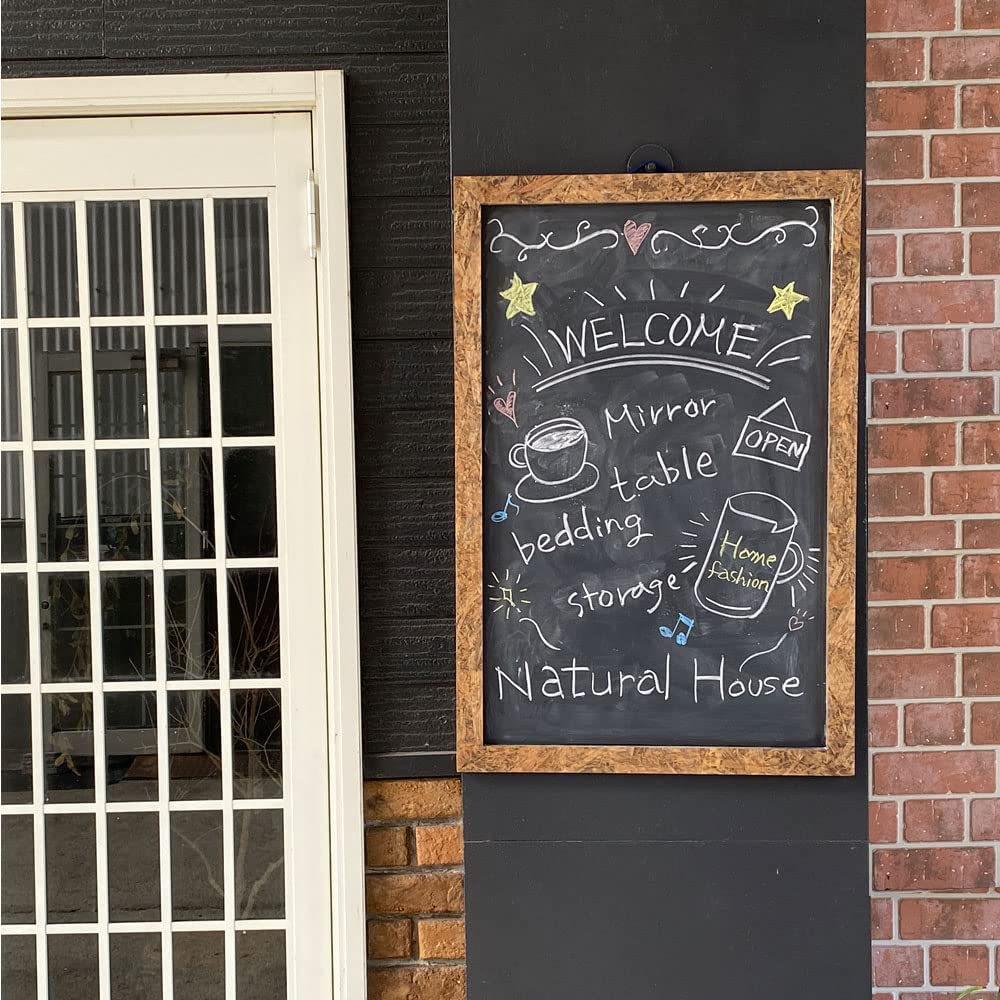 WELCOME
Mirror
OPEN
table
bedding
Home
fashion
storage
Natural House